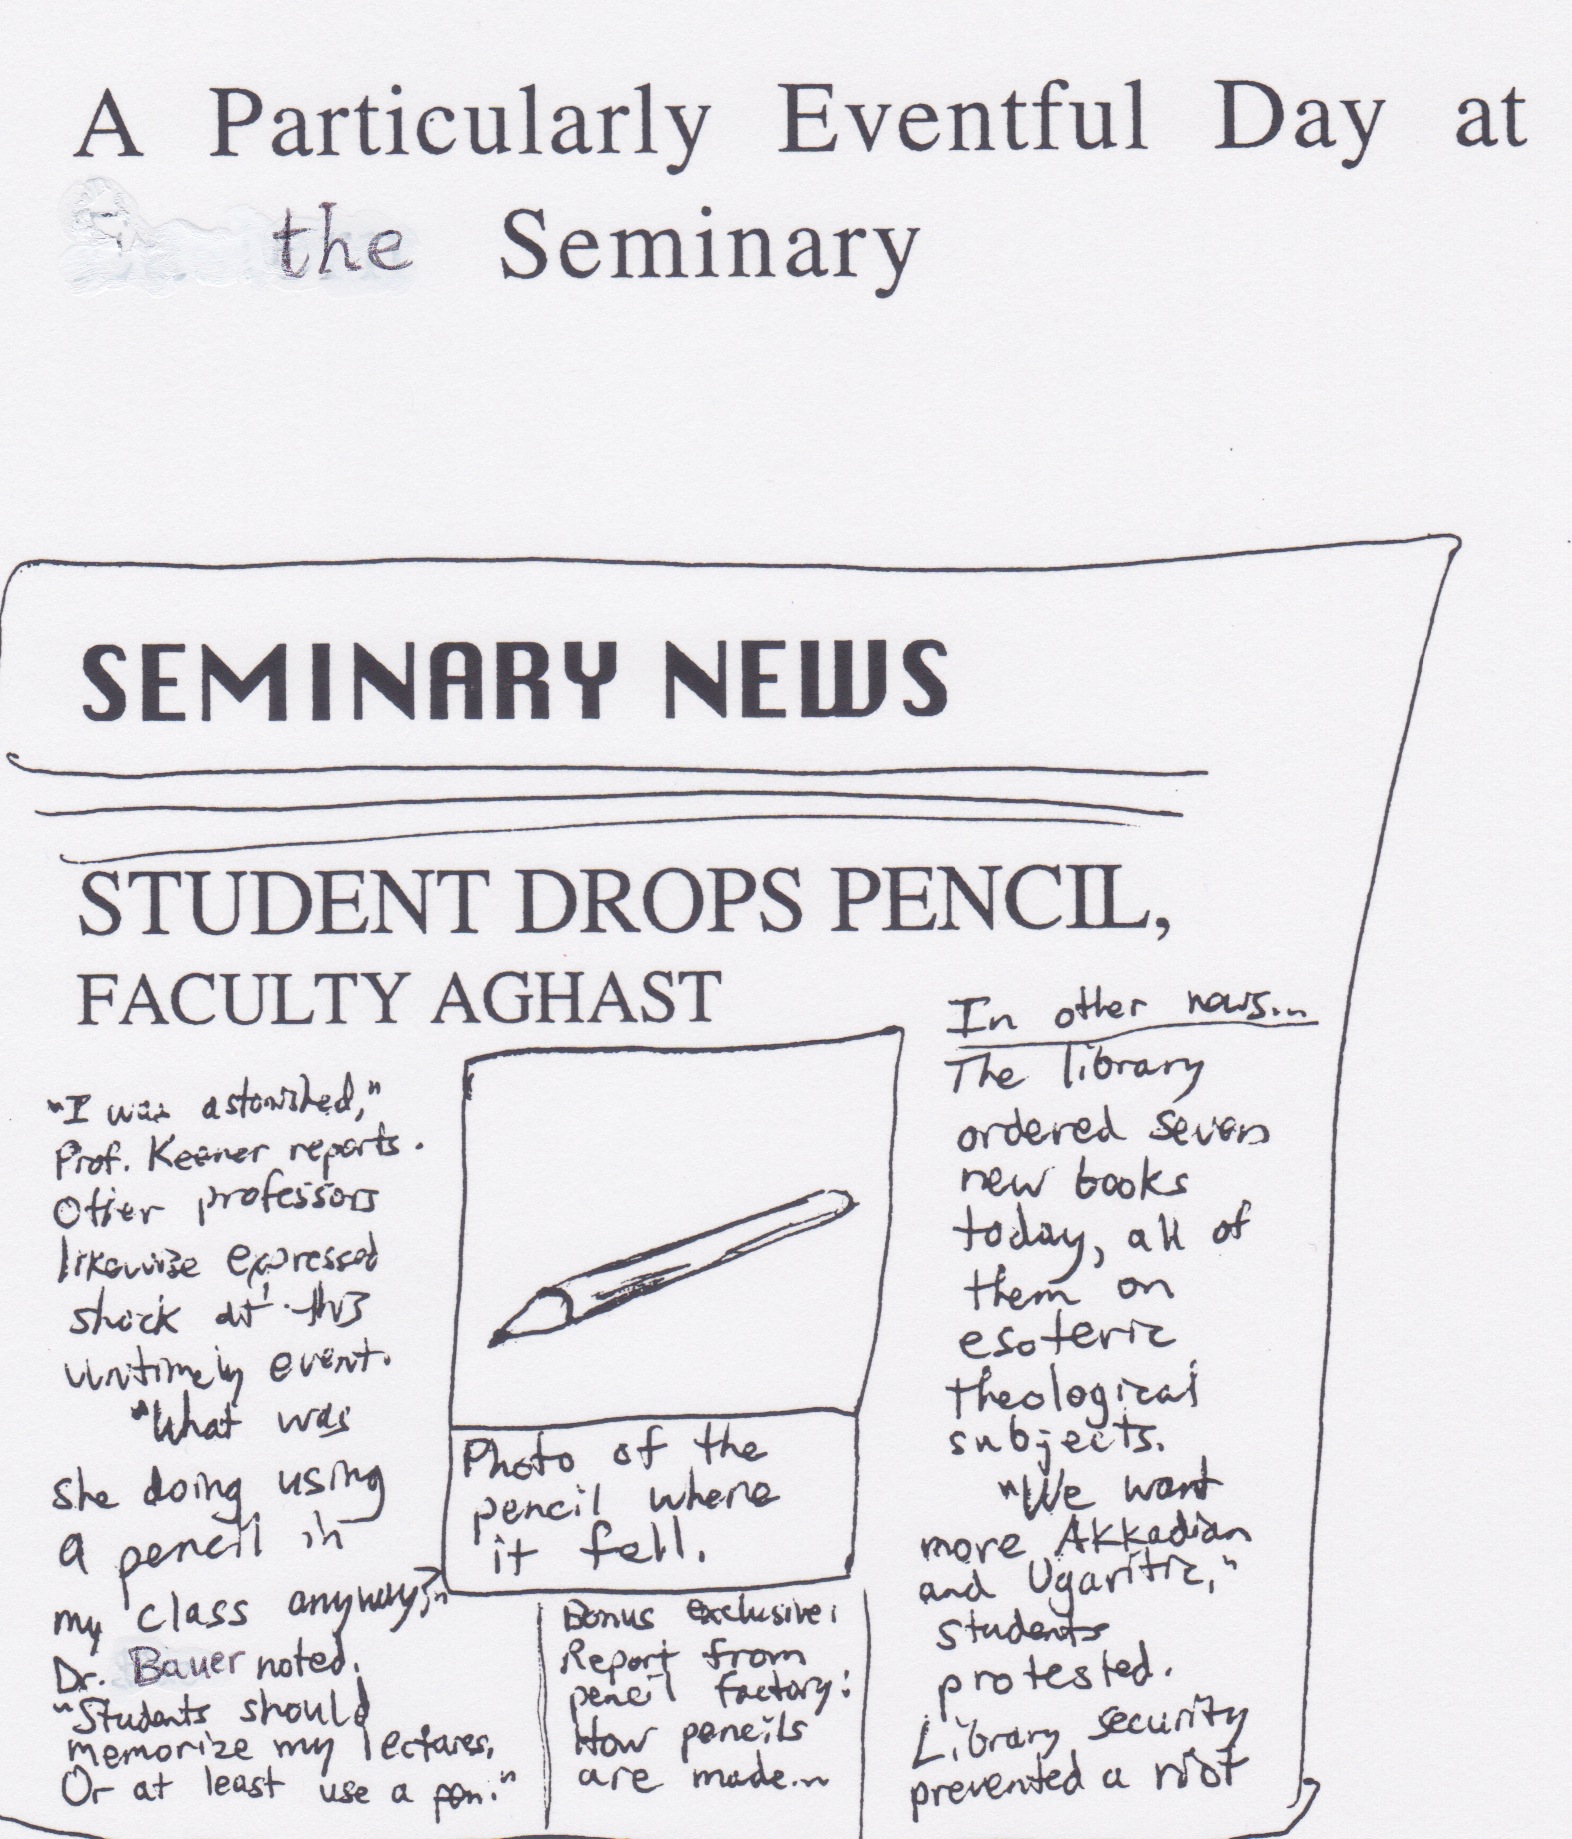 A Particularly Eventful Day at
the Seminary
SEMINARY NEWS
STUDENT DROPS PENCIL,
FACULTY AGHAST
"I was astonished,"
Prof. Keener reports.
Other professors
likewise expressed
shock at this
untimely event.
"What was
she doing using
a pencil in
my class anyway?"
Dr. Bauer noted.
"Students should
memorize my lectures.
Or at least use a pen."
Photo of the
pencil where
it fell.
Bonus exclusive:
Report from
pencil factory:
How pencils
are made...
In other news...
The library
ordered seven
new books
today, all of
them on
esoteric
theological
subjects.
"We want
more Akkadian
and Ugaritic,"
students
protested.
Library security
prevented a riot